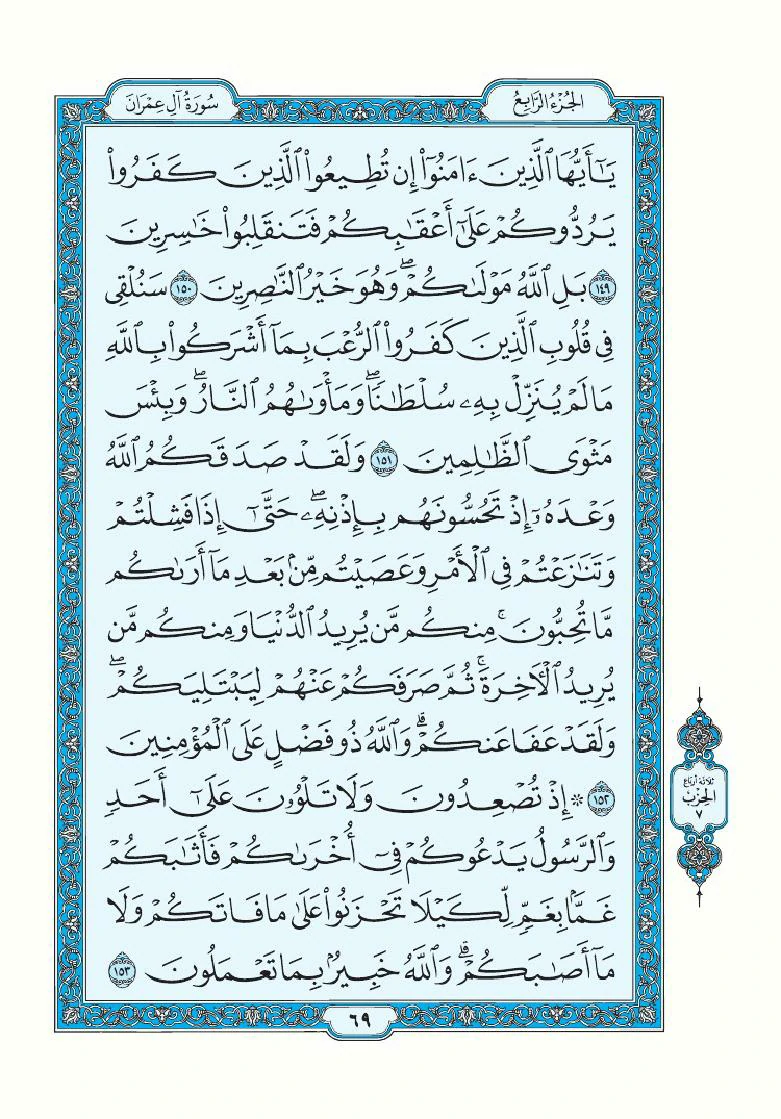 الجُزْءُ الرَّابِعُ
سُورَةُ آلِ عِمْرَانَ
يَـٰٓأَيُّهَا ٱلَّذِينَ ءَامَنُوٓا۟ إِن تُطِيعُوا۟ ٱلَّذِينَ كَفَرُوا۟
يَرُدُّوكُمْ عَلَىٰٓ أَعْقَـٰبِكُمْ فَتَنقَلِبُوا۟ خَـٰسِرِينَ
١٤٩ بَلِ ٱللَّهُ مَوْلَىٰكُمْ ۖ وَهُوَ خَيْرُ ٱلنَّـٰصِرِينَ ١٥٠ سَنُلْقِى
فِى قُلُوبِ ٱلَّذِينَ كَفَرُوا۟ ٱلرُّعْبَ بِمَآ أَشْرَكُوا۟ بِٱللَّهِ
مَا لَمْ يُنَزِّلْ بِهِۦ سُلْطَـٰنًا ۖ وَمَأْوَىٰهُمُ ٱلنَّارُ ۖ وَبِئْسَ
مَثْوَى ٱلظَّـٰلِمِينَ ١٥١ وَلَقَدْ صَدَقَكُمُ ٱللَّهُ
وَعْدَهُۥٓ إِذْ تَحُسُّونَهُم بِإِذْنِهِۦ ۖ حَتَّىٰٓ إِذَا فَشِلْتُمْ
وَتَنَـٰزَعْتُمْ فِى ٱلْأَمْرِ وَعَصَيْتُم مِّنۢ بَعْدِ مَآ أَرَىٰكُم
مَّا تُحِبُّونَ ۚ مِنكُم مَّن يُرِيدُ ٱلدُّنْيَا وَمِنكُم مَّن
يُرِيدُ ٱلْـَٔاخِرَةَ ۚ ثُمَّ صَرَفَكُمْ عَنْهُمْ لِيَبْتَلِيَكُمْ ۖ
وَلَقَدْ عَفَا عَنكُمْ ۗ وَٱللَّهُ ذُو فَضْلٍ عَلَى ٱلْمُؤْمِنِينَ
١٥٢ ۞ إِذْ تُصْعِدُونَ وَلَا تَلْوُۥنَ عَلَىٰٓ أَحَدٍ
وَٱلرَّسُولُ يَدْعُوكُمْ فِىٓ أُخْرَىٰكُمْ فَأَثَـٰبَكُمْ
غَمًّۢا بِغَمٍّ لِّكَيْلَا تَحْزَنُوا۟ عَلَىٰ مَا فَاتَكُمْ وَلَا
مَآ أَصَـٰبَكُمْ ۗ وَٱللَّهُ خَبِيرٌۢ بِمَا تَعْمَلُونَ ١٥٣
ثلاثة أرباع
الحزب
٧
٦٩